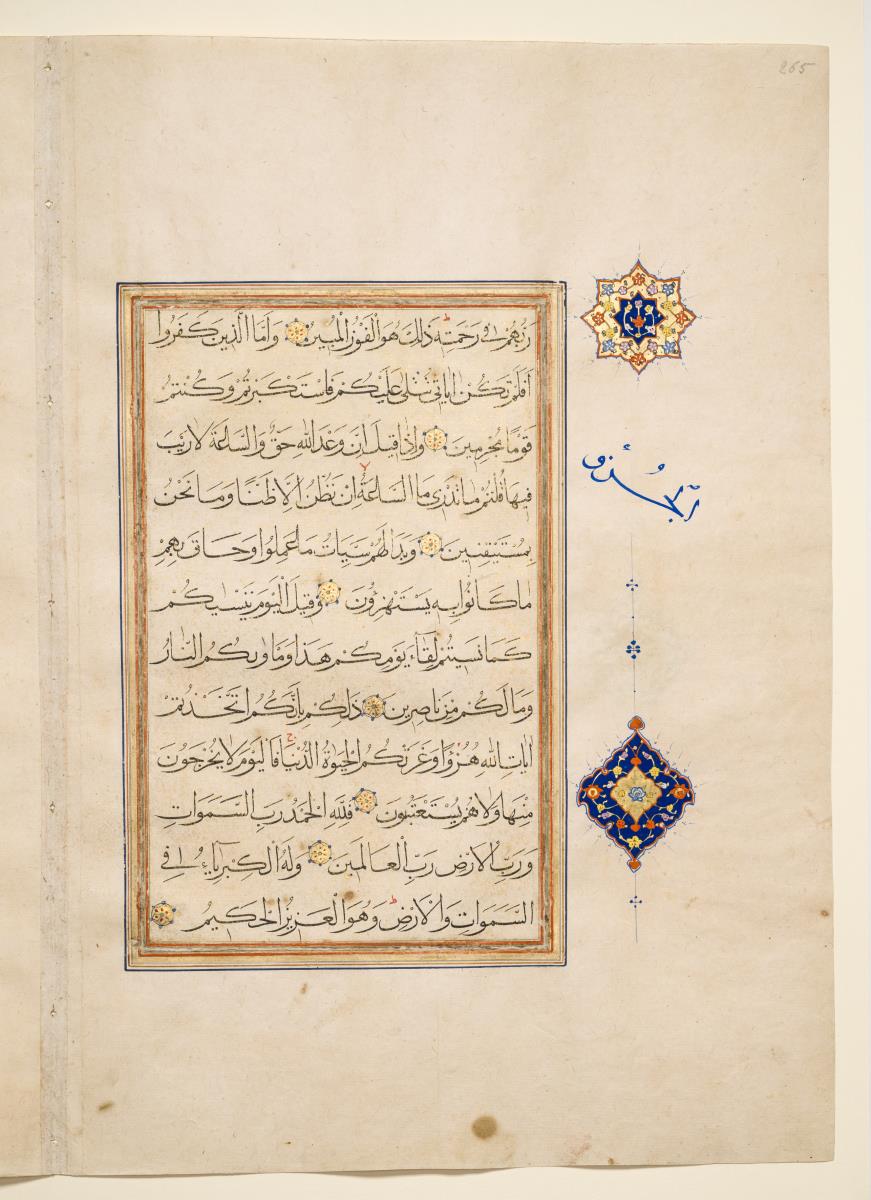 265
رَبُّهُمْ فِى رَحْمَتِهِ ذٰلِكَ هُوَ الْفَوْزُ الْمُبِينُ وَاَمَّا الَّذِينَ كَفَرُوا
اَفَلَمْ تَكُنْ اٰيَاتِى تُتْلٰى عَلَيْكُمْ فَاسْتَكْبَرْتُمْ وَكُنْتُمْ
قَوْمًا مُجْرِمِينَ وَاِذَا قِيلَ اِنَّ وَعْدَ اللّٰهِ حَقٌّ وَالسَّاعَةُ لَا رَيْبَ
فِيهَا قُلْتُمْ مَا نَدْرِى مَا السَّاعَةُ اِنْ نَظُنُّ اِلَّا ظَنًّا وَمَا نَحْنُ
بِمُسْتَيْقِنِينَ وَبَدَا لَهُمْ سَيِّاٰتُ مَا عَمِلُوا وَحَاقَ بِهِمْ
مَا كَانُوا بِهِ يَسْتَهْزِؤُنَ وَقِيلَ الْيَوْمَ نَنْسٰيكُمْ
كَمَا نَسِيتُمْ لِقَآءَ يَوْمِكُمْ هٰذَا وَمَاْوٰىكُمُ النَّارُ
وَمَا لَكُمْ مِنْ نَاصِرِينَ ذٰلِكُمْ بِاَنَّكُمُ اتَّخَذْتُمْ
اٰيَاتِ اللّٰهِ هُزُوًا وَغَرَّتْكُمُ الْحَيٰوةُ الدُّنْيَا فَالْيَوْمَ لَا يُخْرَجُونَ
مِنْهَا وَلَا هُمْ يُسْتَعْتَبُونَ فَلِلّٰهِ الْحَمْدُ رَبِّ السَّمٰوَاتِ
وَرَبِّ الْاَرْضِ رَبِّ الْعَالَمِينَ وَلَهُ الْكِبْرِيَآءُ فِى
السَّمٰوَاتِ وَالْاَرْضِ وَهُوَ الْعَزِيزُ الْحَكِيمُ